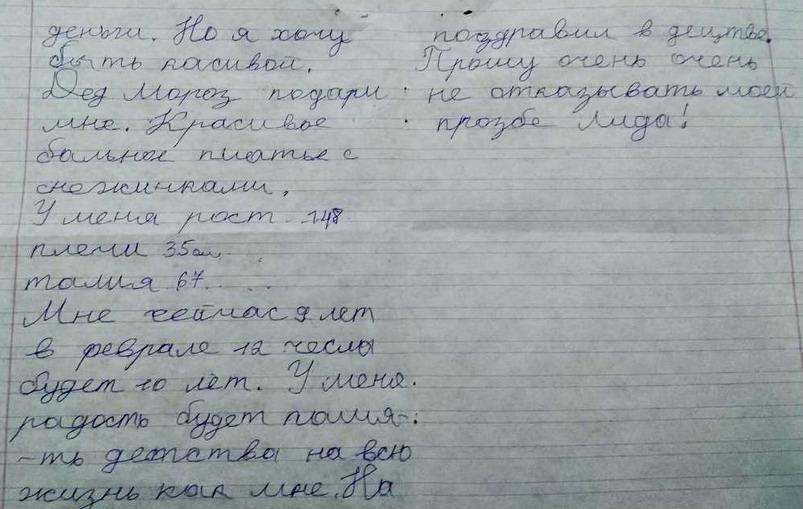 деньги. Но я хочу
быть касивой.
Дед мороз подари
мне. Красивое
бальное платье с
снежинками.
У меня рост 148
плечи 35см
талия 67
Мне сейчас 9 лет
в феврале 12 чеслы
будет 10 лет. У меня.
радость будет памя-
-ть детства на всю
жизнь как мне. На
поздравил в децтве.
Прошу очень очень
не отказывать моей
прозбе Лида!